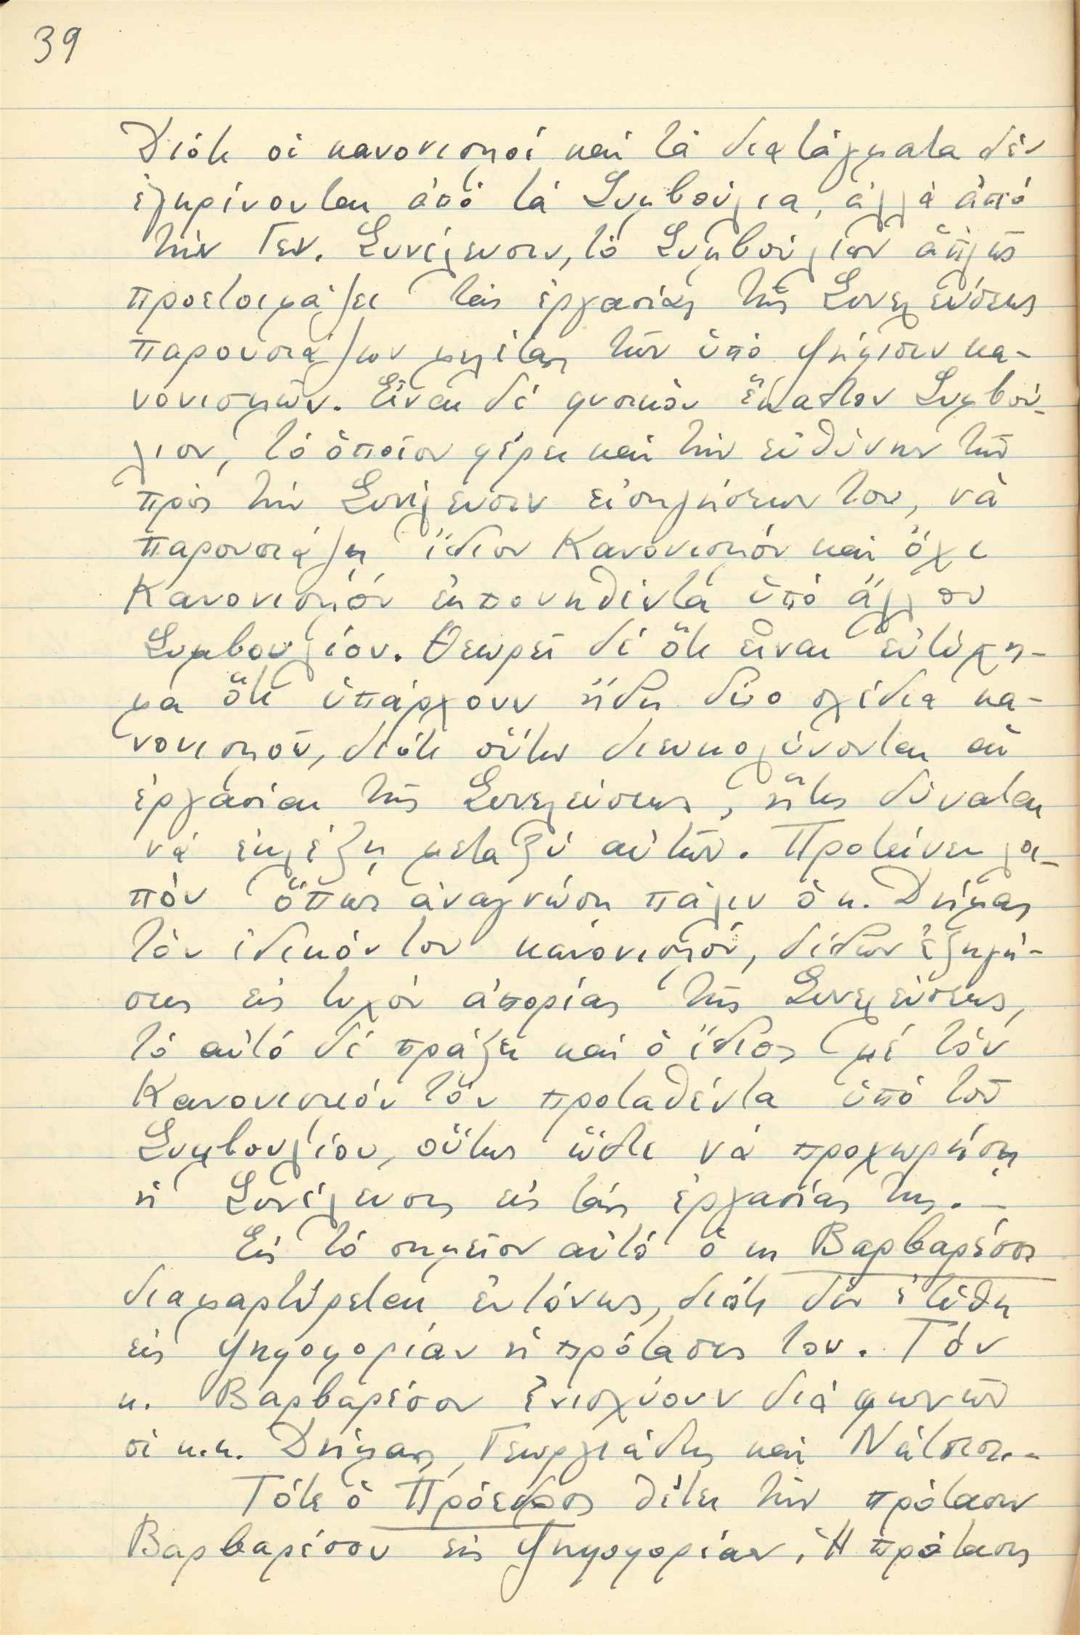 39
Διότι οἱ κανονισμοί καί τά διατάγματα δέν
ἐγκρίνονται ἀπό τά Συμβούλια, ἀλλά ἀπό
τήν Γεν. Συνέλευσιν, τό Συμβούλιον ἁπλῶς
προετοιμάζει τάς ἐργασίας τῆς Συνελεύσεως
παρουσιάζων μελέτας τῶν ὑπό ψήφισιν κα-
νονισμῶν. Εἶναι δέ φυσικόν ἕκαστον Συμβού-
λιον, τό ὁποῖον φέρει καί τήν εὐθύνην τῶν
πρός τήν Συνέλευσιν εἰσηγήσεων του, νά
παρουσιάζη ἴδιον Κανονισμόν καί ὄχι
Κανονισμόν ἐκπονηθέντα ὑπό ἄλλου
Συμβουλίου. Θεωρεῖ δέ ὅτι εἶναι εὐτύχη-
μα ὅτι ὑπάρχουν ἤδη δύο σχέδια κα-
νονισμοῦ, διότι οὕτω διευκολύνονται αἱ
ἐργασίαι τῆς Συνελεύσεως, ἥτις δύναται
νά ἐκλέξη μεταξύ αὐτῶν. Προτείνει λοι-
πόν ὅπως ἀναγνώση πάλιν ὁ κ. Δήμας
τόν ἰδικόν του κανονισμόν, δίδων ἐξηγή-
σεις εἰς τυχόν ἀπορίας τῆς Συνελεύσεως,
τό αὐτό δέ πράξει καί ὁ ἴδιος μέ τόν
Κανονισμόν τόν προταθέντα ὑπό τοῦ
Συμβουλίου, οὕτως ὥστε νά προχωρήση
ἡ Συνέλευσις εἰς τάς ἐργασίας της.–
Εἰς τό σημεῖον αὐτό ὁ κ. Βαρβαρέσος
διαμαρτύρεται ἐντόνως, διότι δέν ἐτέθη
εἰς ψηφοφορίαν ἡ πρότασις του. Τόν
κ. Βαρβαρέσον ἐνισχύουν διά φωνῶν
οἱ κ.κ. Δήμας, Γεωργιάδης καί
Τότε ὁ Πρόεδρος θέτει τήν πρότασιν
Βαρβαρέσου εἰς ψηφοφορίαν. Ἡ πρότασις